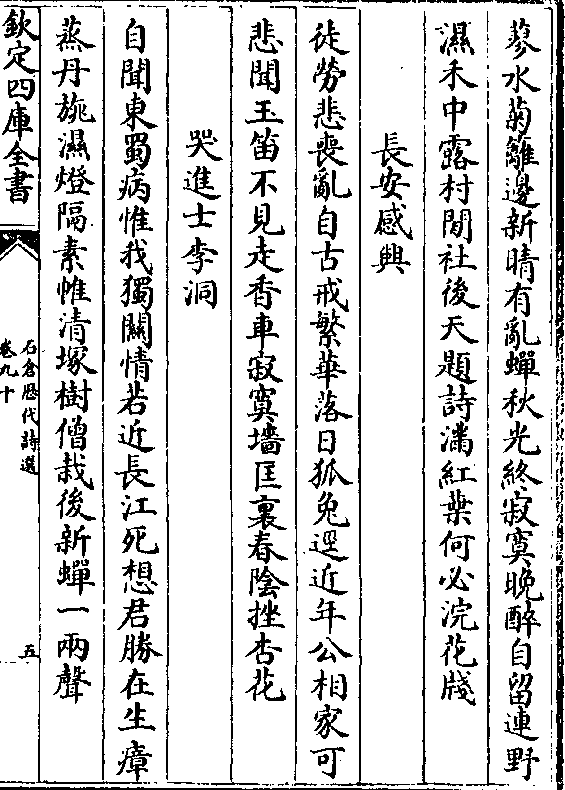 蓼水菊籬邊新晴有亂蟬秋光終寂寞晚醉自留連野
濕禾中露村閒社後天題詩滿紅葉何必浣花牋
長安感興
徒勞悲喪亂自古戒繁華落日狐兔逕近年公相家可
悲聞玉笛不見走香車寂寞墻匡裏春陰挫杏花
哭進士李洞
自聞東蜀病惟我獨關情若近長江死想君勝在生瘴
蒸丹旐濕燈隔素帷清塚樹僧栽後新蟬一兩聲
欽定四庫全書
石倉歴代詩選
卷九十
五